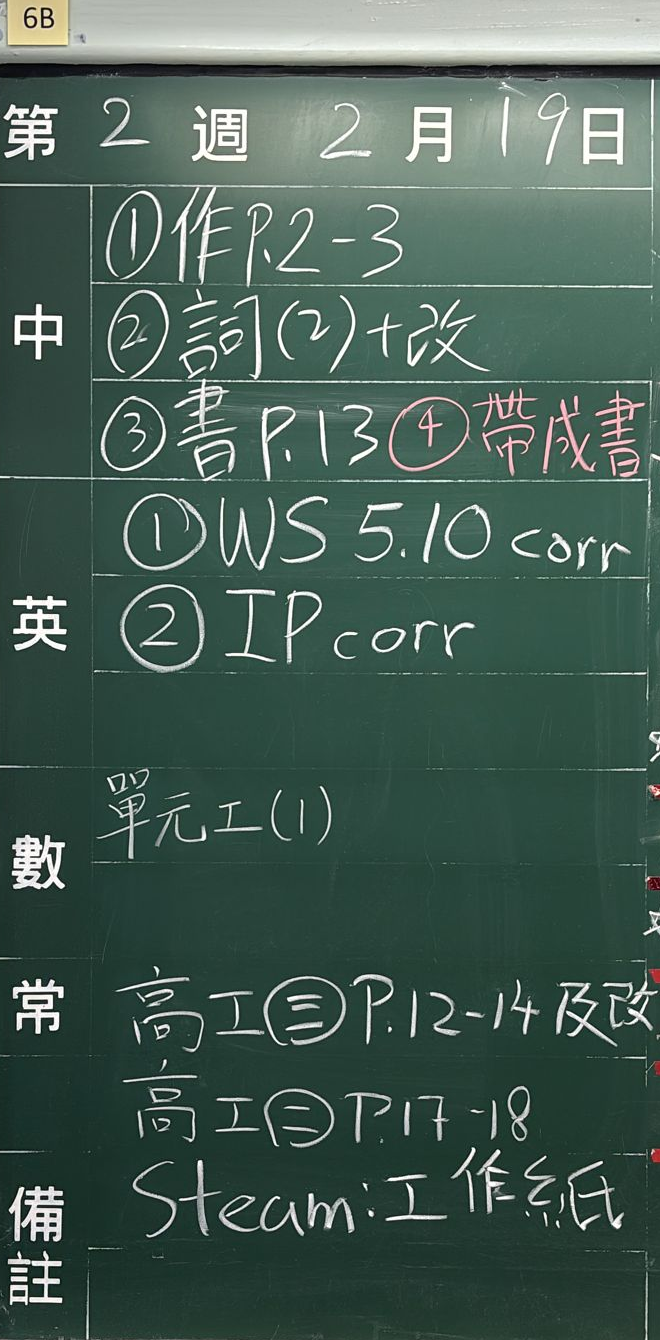 6B
第 2 週 2 月 19 日
中
①作P.2-3
②詞(2)+改
③書P.13 ④帶成書
英
①WS 5.10 corr
②IP corr
數
單元工(1)
常
高工㊂P.12-14及改
高工㊁P.17-18
備註
Steam:工作紙